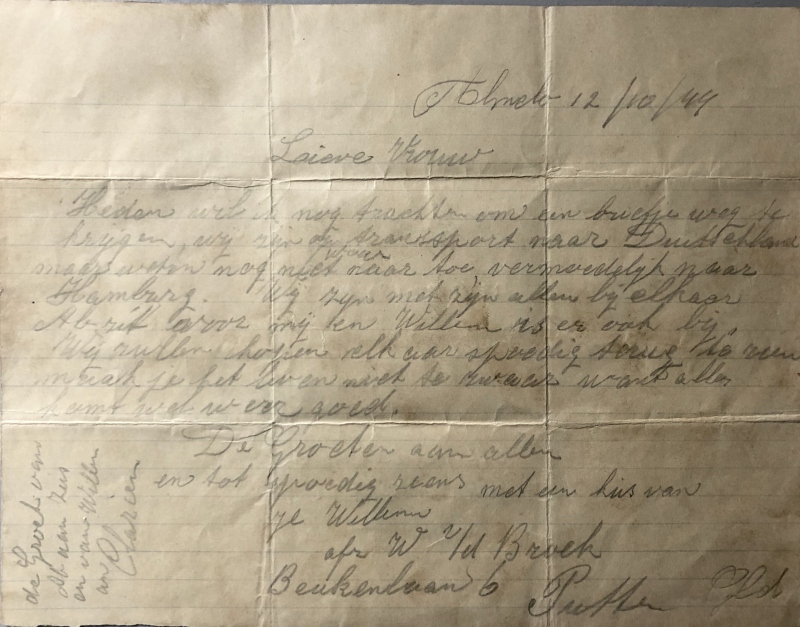 Almelo 12/10/44
Laieve Vrouw
Heden wil ik nog trachten om een briefje weg te
krijgen, wij zijn op transport naar Duitschland
maar weten nog niet waar naar toe, vermoedelijk naar
Hamburg. Wij zijn met zijn allen bij elkaar
zit voor mij en Willem is er ook bij,
Wij zullen hopen elkaar spoedig terug te zien
maak je het leven niet te zwaar want alles
komt wel weer goed.
De Groeten aan allen
en tot spoedig ziens met een kus van
je Willem
afz W v/d Broek
Beukenlaan 6 Putten Gld
de Groet van
aan Zus
en van Willem
an